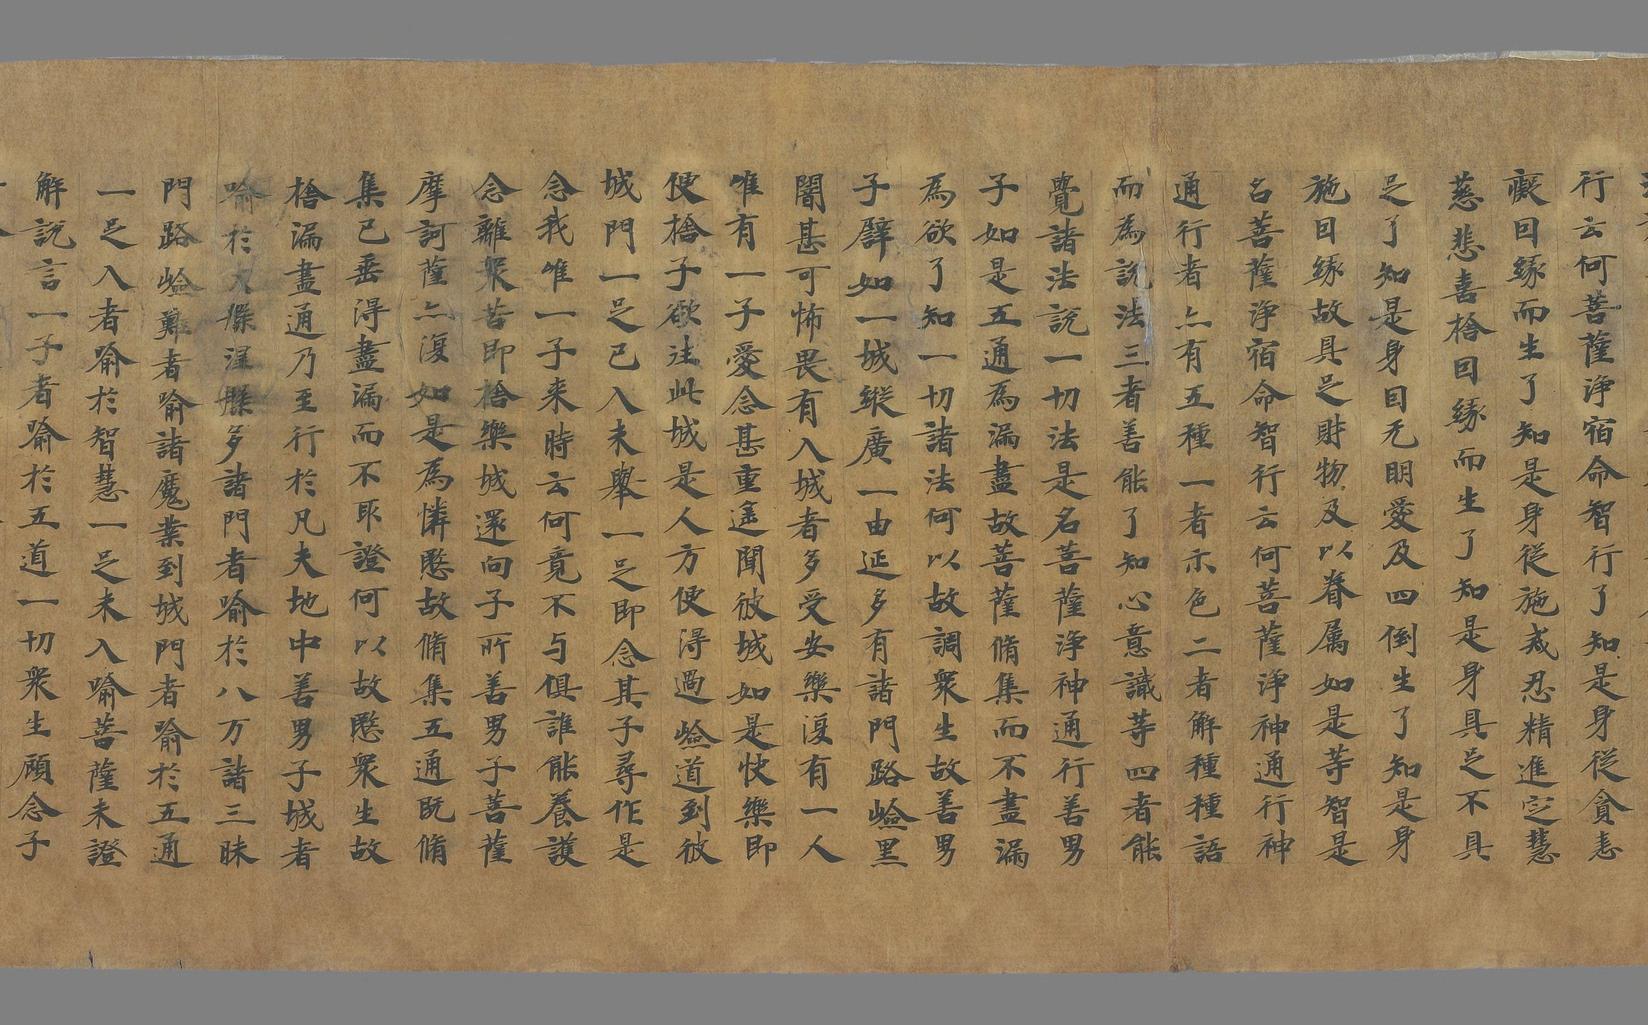 行云何菩薩淨宿命智行了知是身從貪恚
癡因緣而生了知是身從施戒忍精進定慧
慈悲喜捨因緣而生了知是身具足不具
足了知是身因无明愛及四倒生了知是身
施因緣故具足財物及以眷属如是等智是
名菩薩淨宿命智行云何菩薩淨神通行神
通行者亦有五種一者示色二者解種種語
而為說法三者善能了知心意識等四者能
覺諸法說一切法是名菩薩淨神通行善男
子如是五通為漏盡故菩薩脩集而不盡漏
為欲了知一切諸法何以故調衆生故善男
子譬如一城縱廣一由延多有諸門路嶮黑
闇甚可怖畏有入城者多受安樂復有一人
唯有一子愛念甚重遥聞彼城如是快樂即
便捨子欲往此城是人方便得過嶮道到彼
城門一足已入未舉一足即念其子尋作是
念我唯一子来時云何竟不与俱誰能養護
令離衆苦即捨樂城還向子所善男子菩薩
摩訶薩亦復如是為憐愍故脩集五通既脩
集已垂得盡漏而不取證何以故愍衆生故
捨漏盡通乃至行於凡夫地中善男子城者
喻於大般涅槃多諸門者喻於八万諸三昧
門路嶮難者喻諸魔業到城門者喻於五通
一足入者喻於智慧一足未入喻菩薩未證
解說言一子者喻於五道一切衆生顧念子